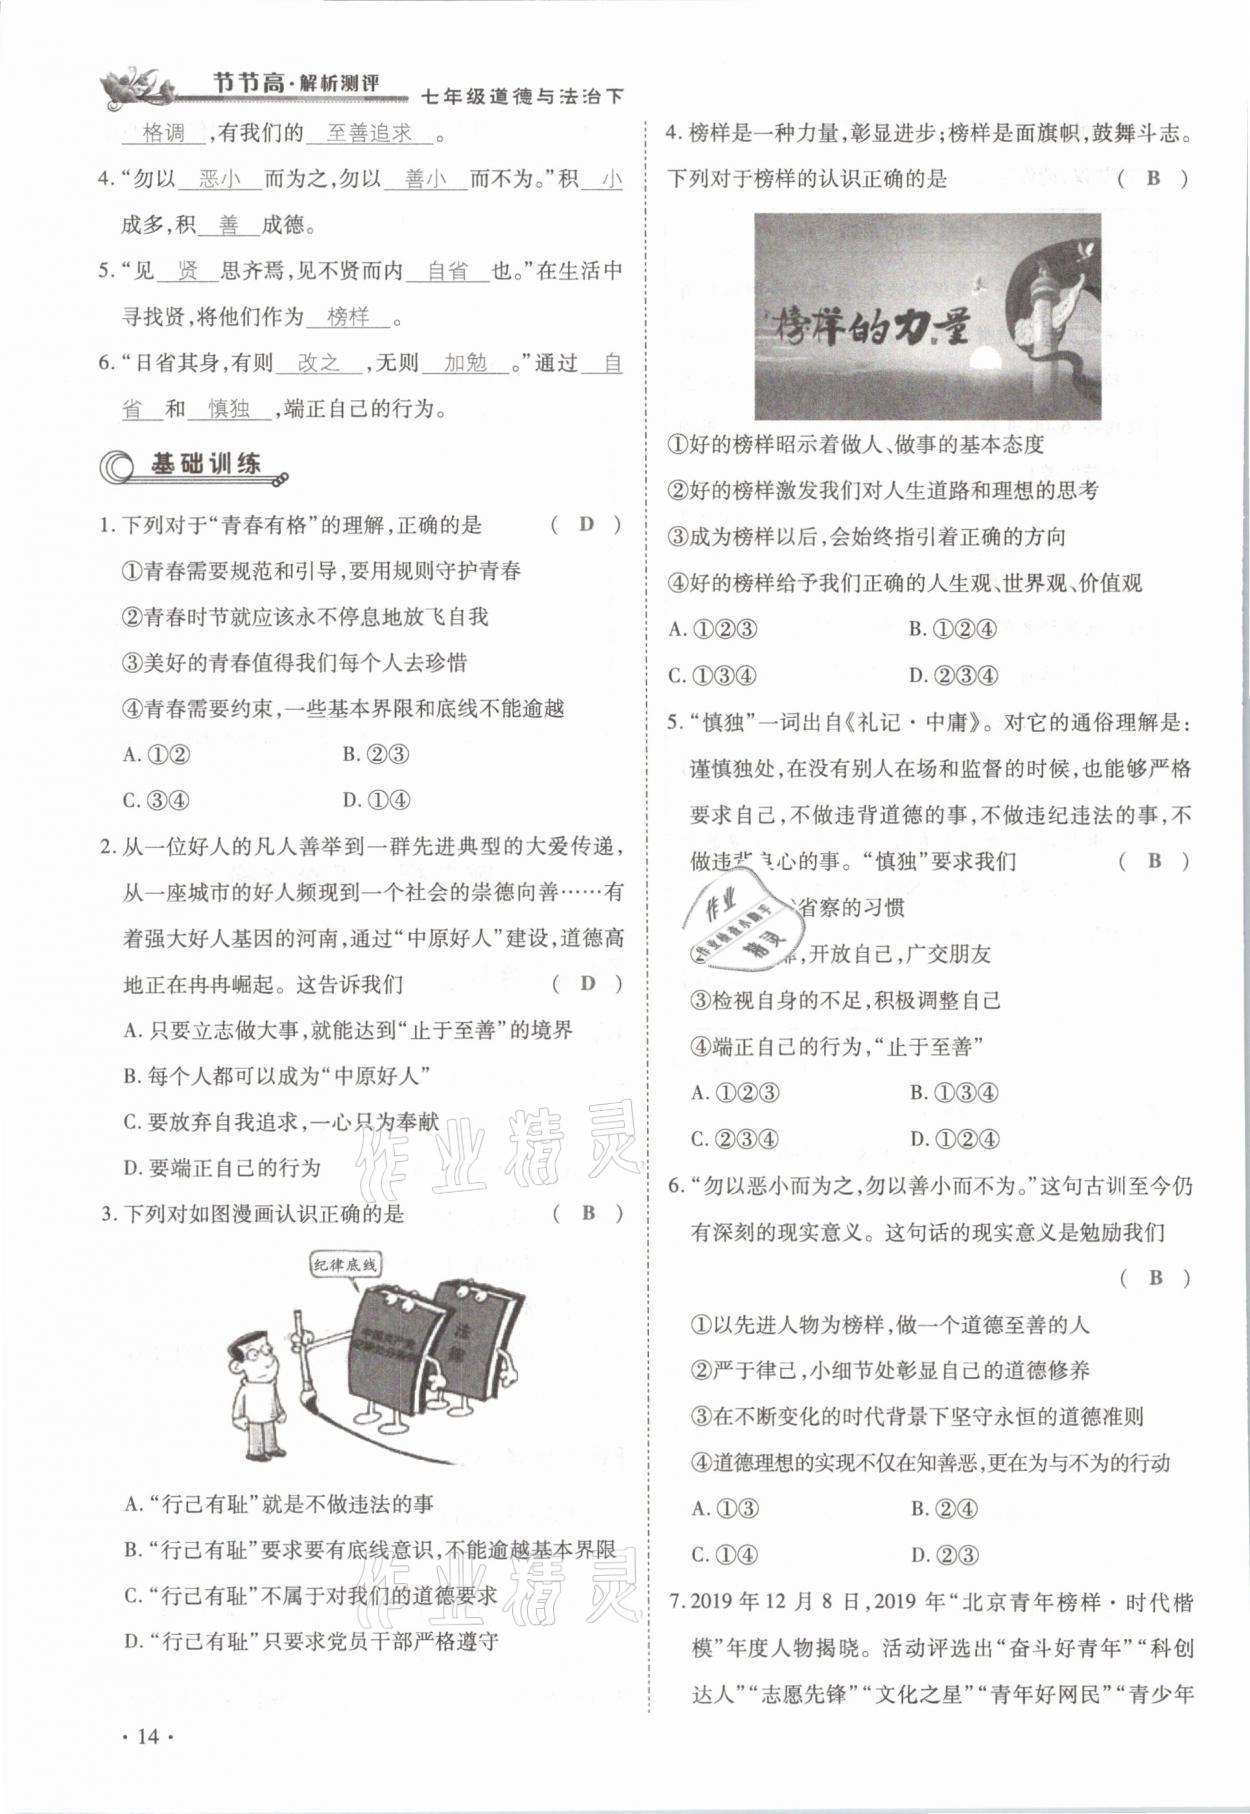 节节高·解析测评
七年级道德与法治下
格调,有我们的 至善追求 。
4. “勿以 恶小 而为之,勿以 善小 而不为。”积 小
成多,积 善 成德。
5. “见 贤 思齐焉,见不贤而内 自省 也。”在生活中
寻找贤,将他们作为 榜样 。
6. “日省其身,有则 改之 ,无则 加勉 。”通过 自
省 和 慎独 ,端正自己的行为。
基础训练
1. 下列对于“青春有格”的理解,正确的是 ( D )
①青春需要规范和引导,要用规则守护青春
②青春时节就应该永不停息地放飞自我
③美好的青春值得我们每个人去珍惜
④青春需要约束,一些基本界限和底线不能逾越
A. ①② B. ②③
C. ③④ D. ①④
2. 从一位好人的凡人善举到一群先进典型的大爱传递,
从一座城市的好人频现到一个社会的崇德向善……有
着强大好人基因的河南,通过“中原好人”建设,道德高
地正在冉冉崛起。这告诉我们 ( D )
A. 只要立志做大事,就能达到“止于至善”的境界
B. 每个人都可以成为“中原好人”
C. 要放弃自我追求,一心只为奉献
D. 要端正自己的行为
3. 下列对如图漫画认识正确的是 ( B )
纪律底线
法律
A. “行己有耻”就是不做违法的事
B. “行己有耻”要求要有底线意识,不能逾越基本界限
C. “行己有耻”不属于对我们的道德要求
D. “行己有耻”只要求党员干部严格遵守
· 14 ·
4. 榜样是一种力量,彰显进步;榜样是面旗帜,鼓舞斗志。
下列对于榜样的认识正确的是 ( B )
榜样的力量
①好的榜样昭示着做人、做事的基本态度
②好的榜样激发我们对人生道路和理想的思考
③成为榜样以后,会始终指引着正确的方向
④好的榜样给予我们正确的人生观、世界观、价值观
A. ①②③ B. ①②④
C. ①③④ D. ②③④
5. “慎独”一词出自《礼记·中庸》。对它的通俗理解是:
谨慎独处,在没有别人在场和监督的时候,也能够严格
要求自己,不做违背道德的事,不做违纪违法的事,不
做违背良心的事。“慎独”要求我们 ( B )
省察的习惯
,开放自己,广交朋友
③检视自身的不足,积极调整自己
④端正自己的行为,“止于至善”
A. ①②③ B. ①③④
C. ②③④ D. ①②④
6. “勿以恶小而为之,勿以善小而不为。”这句古训至今仍
有深刻的现实意义。这句话的现实意义是勉励我们
( B )
①以先进人物为榜样,做一个道德至善的人
②严于律己,小细节处彰显自己的道德修养
③在不断变化的时代背景下坚守永恒的道德准则
④道德理想的实现不仅在知善恶,更在为与不为的行动
A. ①③ B. ②④
C. ①④ D. ②③
7. 2019 年 12 月 8 日,2019 年“北京青年榜样·时代楷
模”年度人物揭晓。活动评选出“奋斗好青年”“科创
达人”“志愿先锋”“文化之星”“青年好网民”“青少年
作业
作业检查小助手
精灵
作业精灵
作业精灵